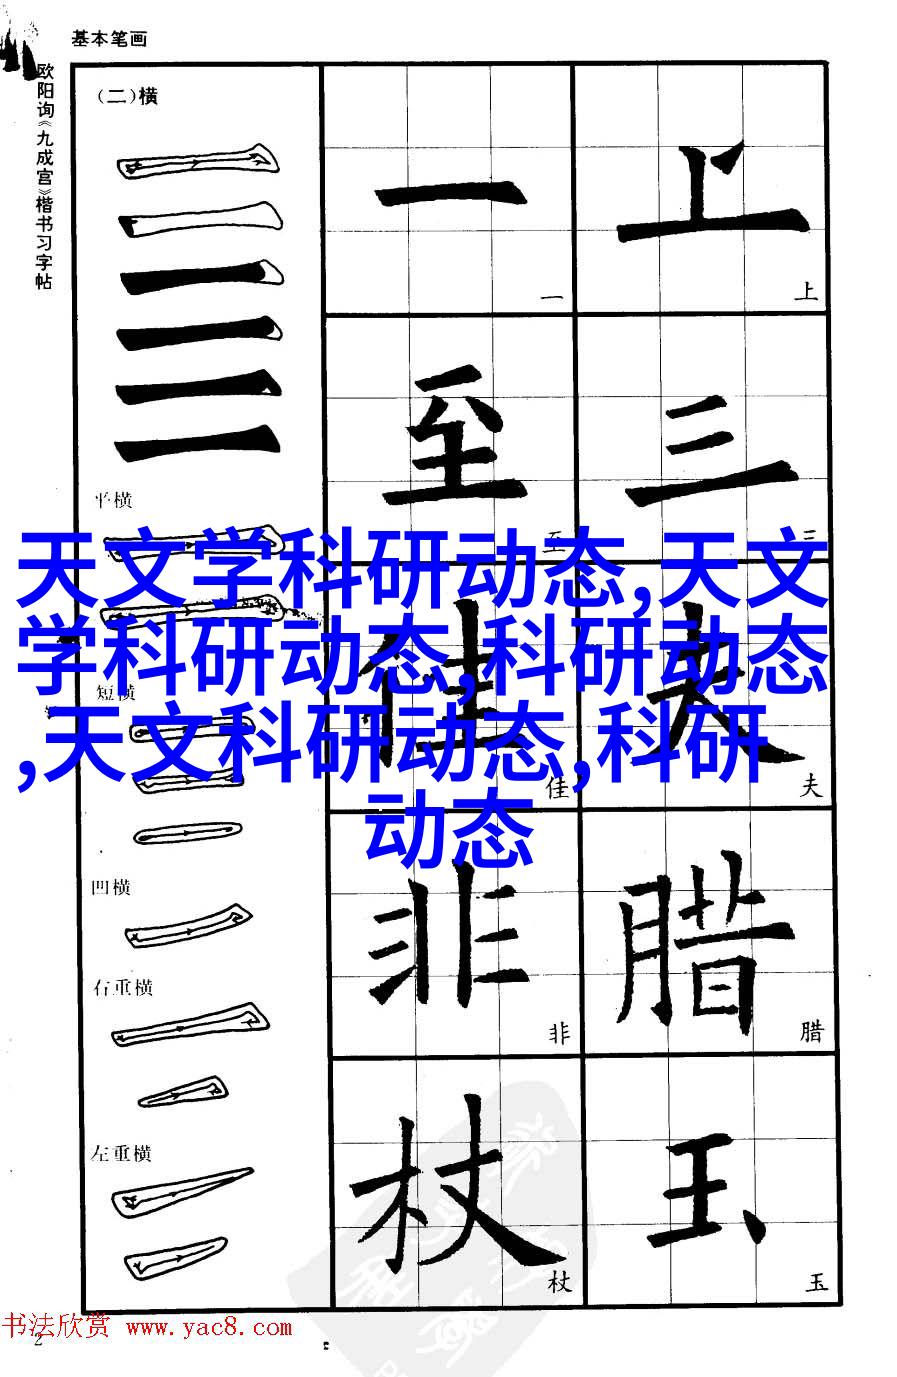 基本笔画
欧阳询《九成宫》楷书习字帖
(二)横
平横
短横
凹横
右重横
左重横
一 上
一 上
至 三
至 三
佳 夫
佳 夫
非 腊
非 腊
杖 玉
杖 玉
天文学科研动态,天文
学科研动态,科研动态
,天文科研动态,科研
动态
书法欣赏 www.yac8.com
2